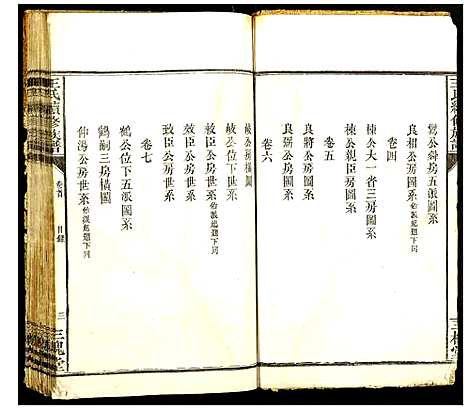 鶯公舜房五派圖系
良相公房圖系始派起題下同
卷四
棟公大一省三房圖系
棟公親臣房圖系
卷五
良將公房圖系
良弼公房圖系
卷六
公房橫圖
公房世系
政臣公房世系
致臣公房世系
卷七
鶴公位下五派圖系
鶴嗣三房橫圖
仲湯公房世系始派起題下同
王氏續修族譜
卷首
目錄
三
三槐堂